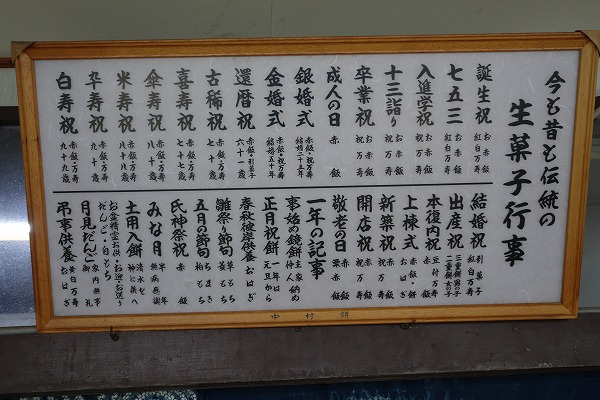 今も昔も伝統の
生菓子行事
誕生祝 お赤飯 紅白万寿
七五三 お赤飯 紅白万寿
入進学祝 お赤飯 祝万寿
十三詣り お赤飯 祝万寿
卒業祝 お赤飯 祝万寿
成人の日 赤飯
銀婚式 赤飯・祝万寿 結婚二十五年
金婚式 赤飯・祝万寿 結婚五十年
還暦祝 赤飯・引菓子 六十一歳
古稀祝 赤飯・万寿 七十歳
喜寿祝 赤飯・万寿 七十七歳
傘寿祝 赤飯・万寿 八十歳
米寿祝 赤飯・万寿 八十八歳
卆寿祝 赤飯・万寿 九十歳
白寿祝 赤飯・万寿 九十九歳
結婚祝 引菓子 紅白万寿
出産祝 三重餅 男の子 二重餅 女の子
本復内祝 豆付万寿 祝万寿
上棟式 赤飯・餅 おはぎ
新築祝 赤飯 祝万寿
開店祝 赤飯 祝万寿
敬老の日 赤飯 栗赤飯
一年の記事
事始め鏡餅 主家 納め 仲人
正月祝餅 年末は 元旦から
春秋彼岸供養 おはぎ
雛祭り節句 草もち 菱もち
五月の節句 ちまき 柏もち
氏神祭祝 赤飯
みな月 半年 無病息災
土用入餅 清水を 神に供へ
お盆精霊お供・お迎・お送り だんご・白もち
月見だんご 家内無事 御礼
弔事供養 黄白万寿 おはぎ
中村餅